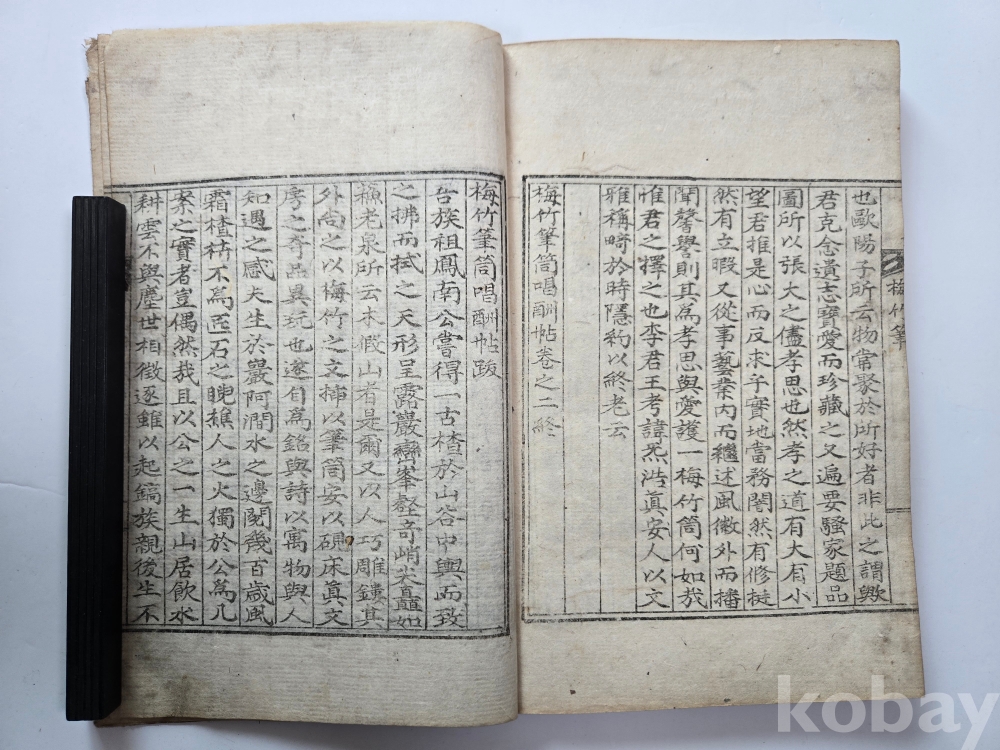 也歐陽子所云物常聚於所好者非此之謂歟
君克念遺志寶愛而珍藏之又遍要騷家題品
圖所以張大之儘孝思也然孝之道有大有小
望君推是心而反求乎實地當務闇然有修挺
然有立暇又從事藝業內而繼述風徽外而播
聞馨譽則其爲孝思與愛護一梅竹筒何如哉
惟君之擇之也李君王考諱 浩眞安人以文
雅稱時於時隱約以終老云
梅竹筆筒唱酬帖卷之二終
梅竹筆
梅竹筆筒唱酬帖跋
吾族祖鳳南公嘗得一古楂於山谷中輿而致
之拂而拭之天形呈露巖巒峯壑奇峭 矗如
穐老泉所云木假山者是爾又以人巧雕鏤其
外尚之以梅竹之文揷以筆筒安以硯床眞文
房之奇 異玩也遂自爲銘與詩以寓物與人
知遇之感夫生於巖阿澗水之邊閱幾百歲風
霜楂枿不爲匠石之睨樵人之火獨於公爲几
案之寶者豈偶然哉且以公之一生山居飮水
耕雲不與塵世相徵逐雖以起鎬族親後生不
kobay